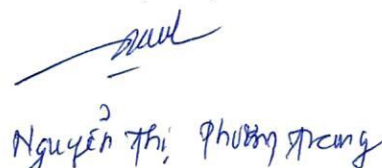 Nguyễn Thị Phương Trang